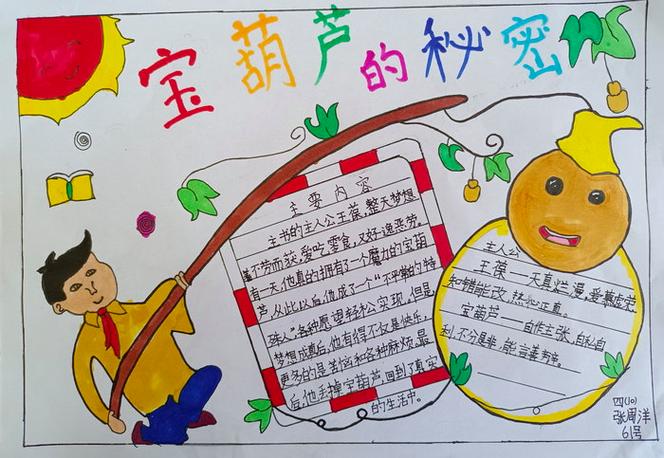 宝葫芦的秘密
主要内容
主书的主人公王葆,整天梦想
着不劳而获,爱吃零食,又好逸恶劳。
有一天,他真的拥有了一个魔力的宝葫
芦,从此以后,他成了个“不平常的特
殊人”,各种愿望轻松实现。但是
梦想成真后,他有得不仅是快乐,
更多的是苦恼和各种麻烦。最
后,他丢掉宝葫芦,回到了真实
的生活中。
主人公
王葆——天真烂漫,爱慕虚荣,
知错能改,热心正直。
宝葫芦——自作主张,自私自
利,不分是非,能言善
四(10)
张周洋
61号